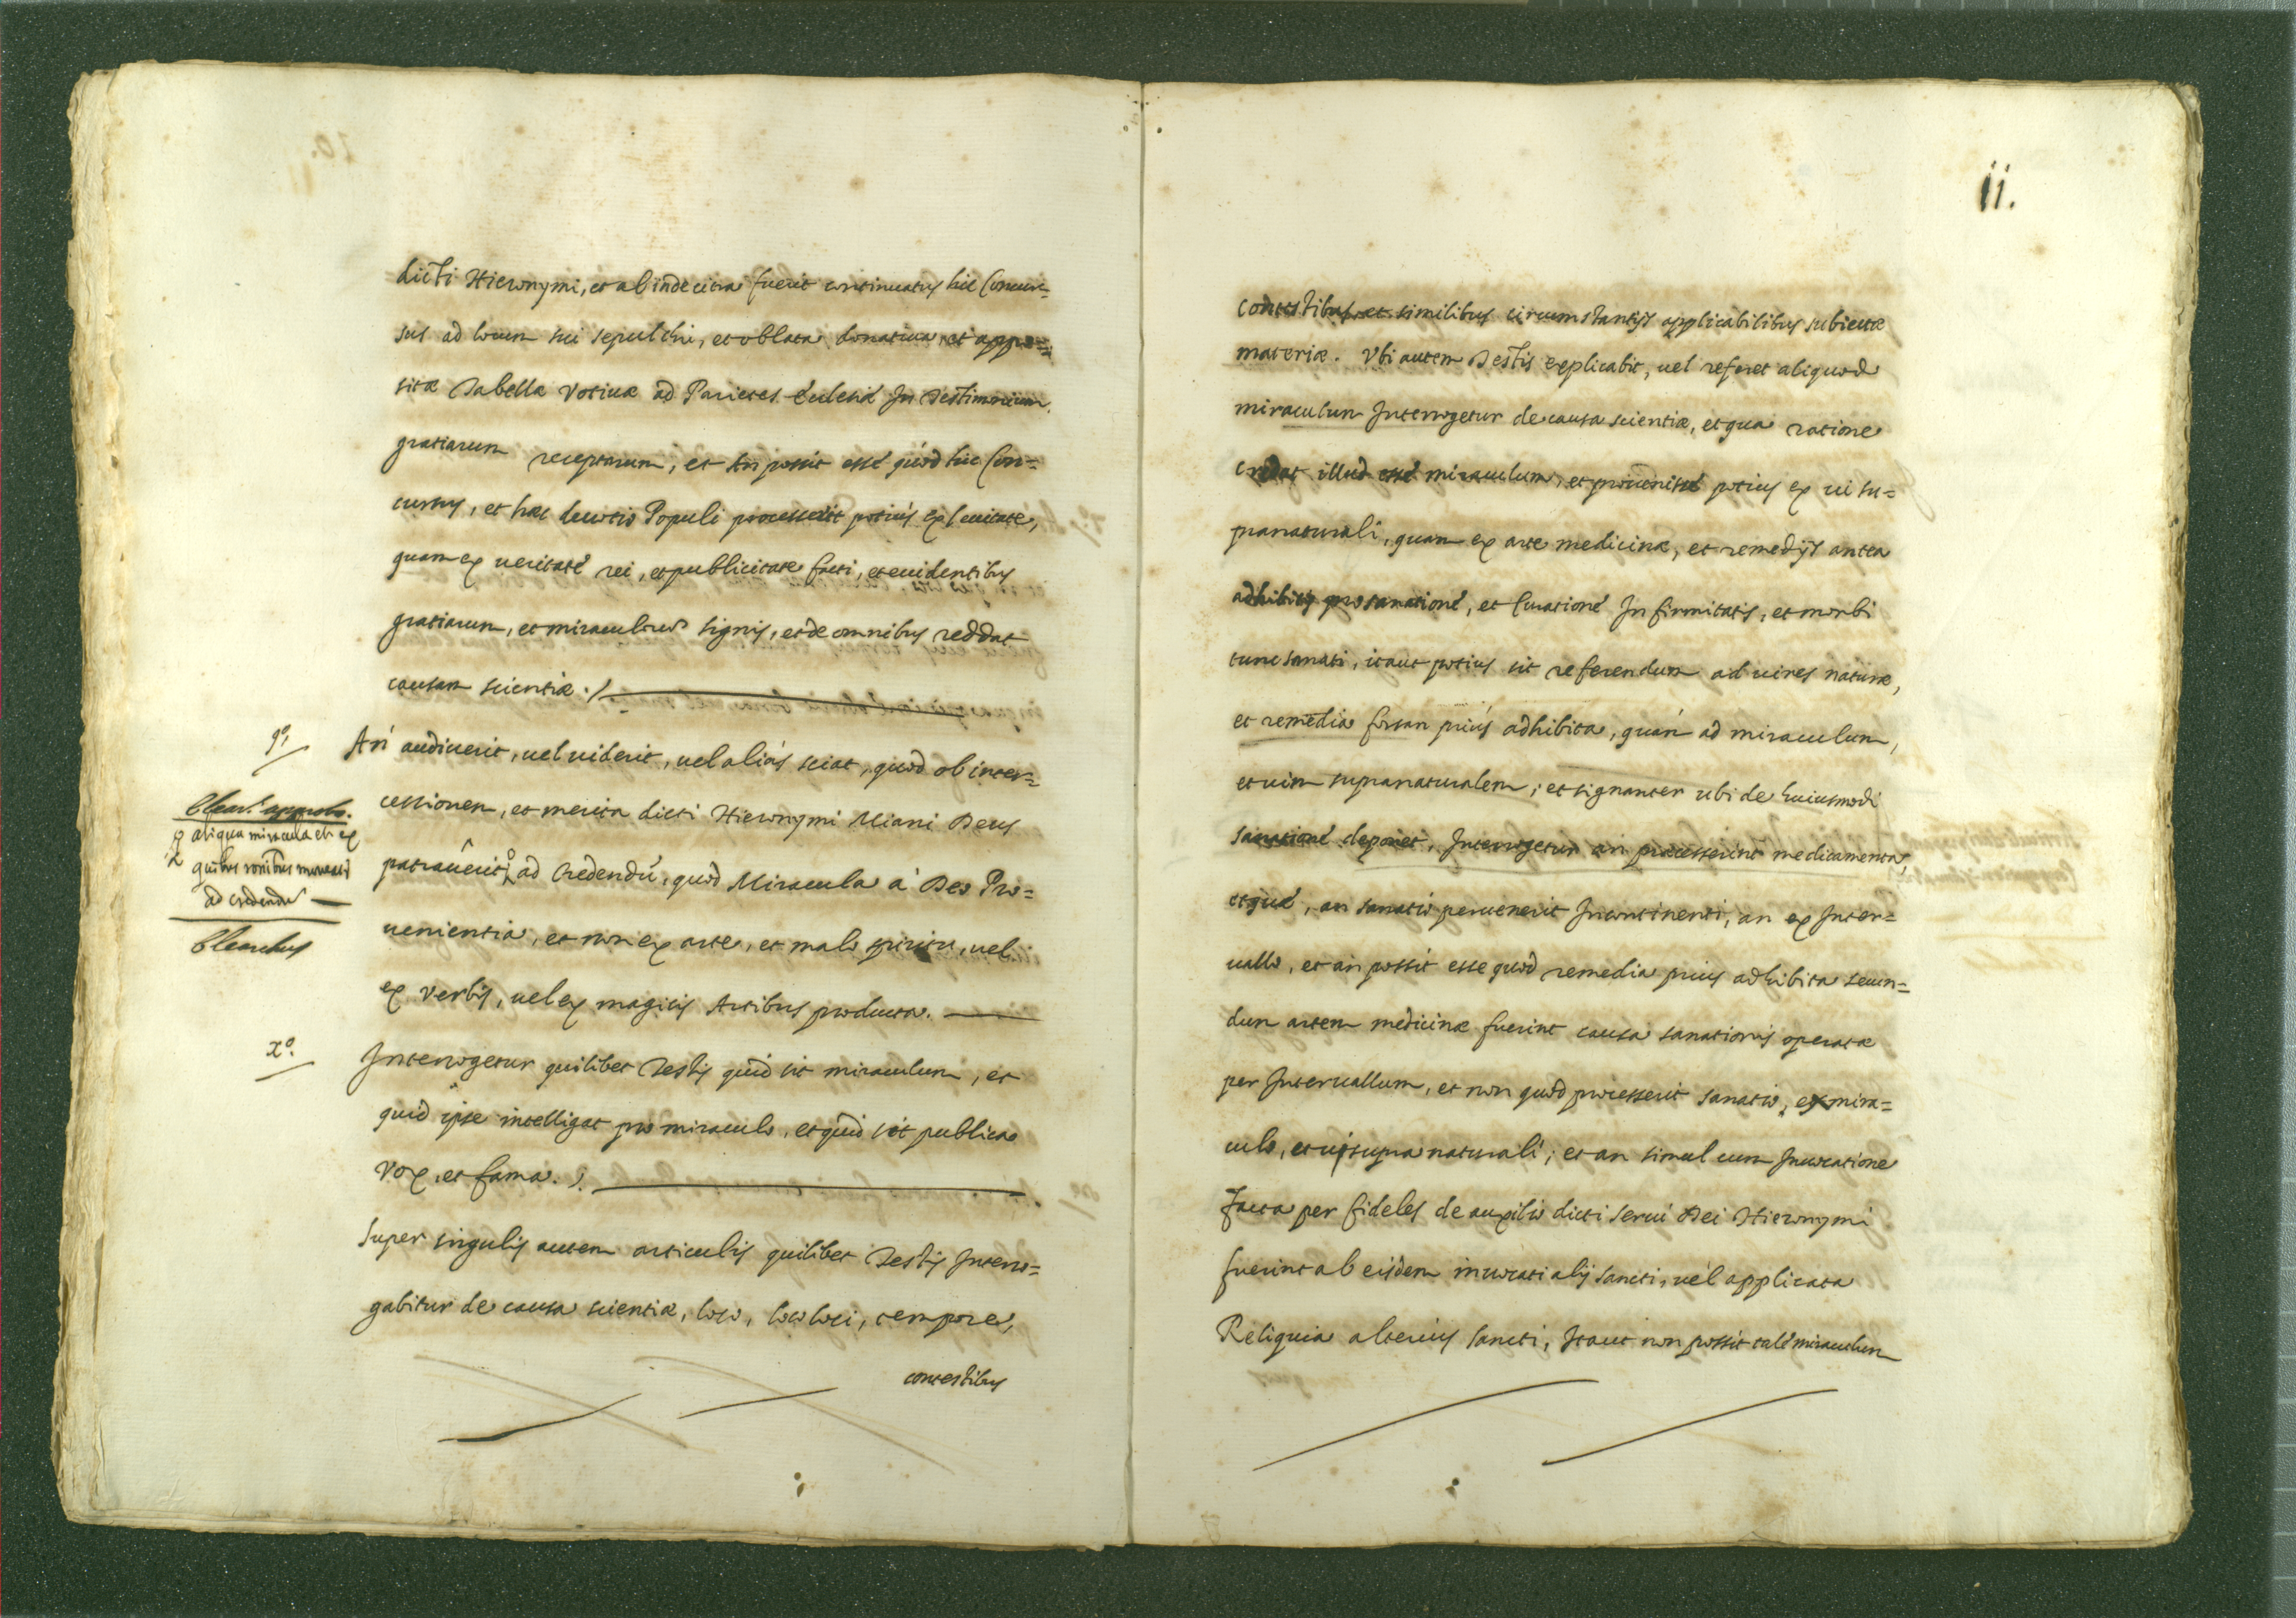 dicti Hieronymi, et ab inde citra fuerit continuatus hic Concur=
sus ad locum sui sepulchri, et oblata donatiua et appo=
sitæ Tabellæ Votiuæ ad Parietes Ecclesiæ In Testimonium
gratiarum receptarum, et An possit esse quòd hic Con=
cursus, et hæc deuotio Populi processerit potiùs ex leuitate,
quam ex ueritate rei, et publicitate facti, et euidentibus
gratiarum, et miraculorum signis, et de omnibus reddat
causam scientiæ.
9º
An audiuerit, uel uiderit, uel aliàs sciat, quod ob inter=
cessionem, et merita dicti Hieronymi Miani Deus
patrauerit ad Credendũ, quod Miracula à Deo Pro=
uenientia, et non ex arte, et malo spiritu, uel
ex Verbis, uel ex magicis Artibus producta.
aliqua miracula et ex
quibus moueat
ad credendũ
xº.
Interrogetur quilibet Testis quid sit miraculum, et
quid ipse intelligat pro miraculo, et quid sit publica
Vox, et fama.
Super singulis autem articulis quilibet Testis Interro=
gabitur de causa scientiæ, loco, loco loci, tempore,
contestibus
ii.
contestibus, et similibus circumstantijs applicabilibus subiectæ
materiæ. Vbi autem Testis explicabit, uel referet aliquod
miraculum Interrogetur de causa scientiæ, et qua ratione
credat illud esse miraculum, et prouenisse potius ex ui su=
pranaturali, quam ex arte medicinæ, et remedijs antea
adhibitis pro sanatione, et Curatione Infirmitatis, et morbi
tunc sanati, itaut potius sit referendum ad uires naturæ,
et remedia forsan priùs adhibita, quàm ad miraculum,
et uim supranaturalem; et signanter ubi de huiusmodi
sanatione deponet, Interrogetur an præcesserint medicamenta,
et quæ, an sanatio peruenerit Incontinenti, an ex Inter=
uallo, et an possit esse quod remedia prius adhibita secun=
dum artem medicinæ fuerint causa sanationis operatæ
per Interuallum, et non quod processerit sanatio, ex mira=
culo, et ui supra naturali; et an simul cum Inuocatione
facta per fideles de auxilio dicti serui Dei Hieronymi
fuerint ab eisdem inuocati alij sancti, uel applicata
Reliquia alterius sancti, Itaut non possit tale miraculum